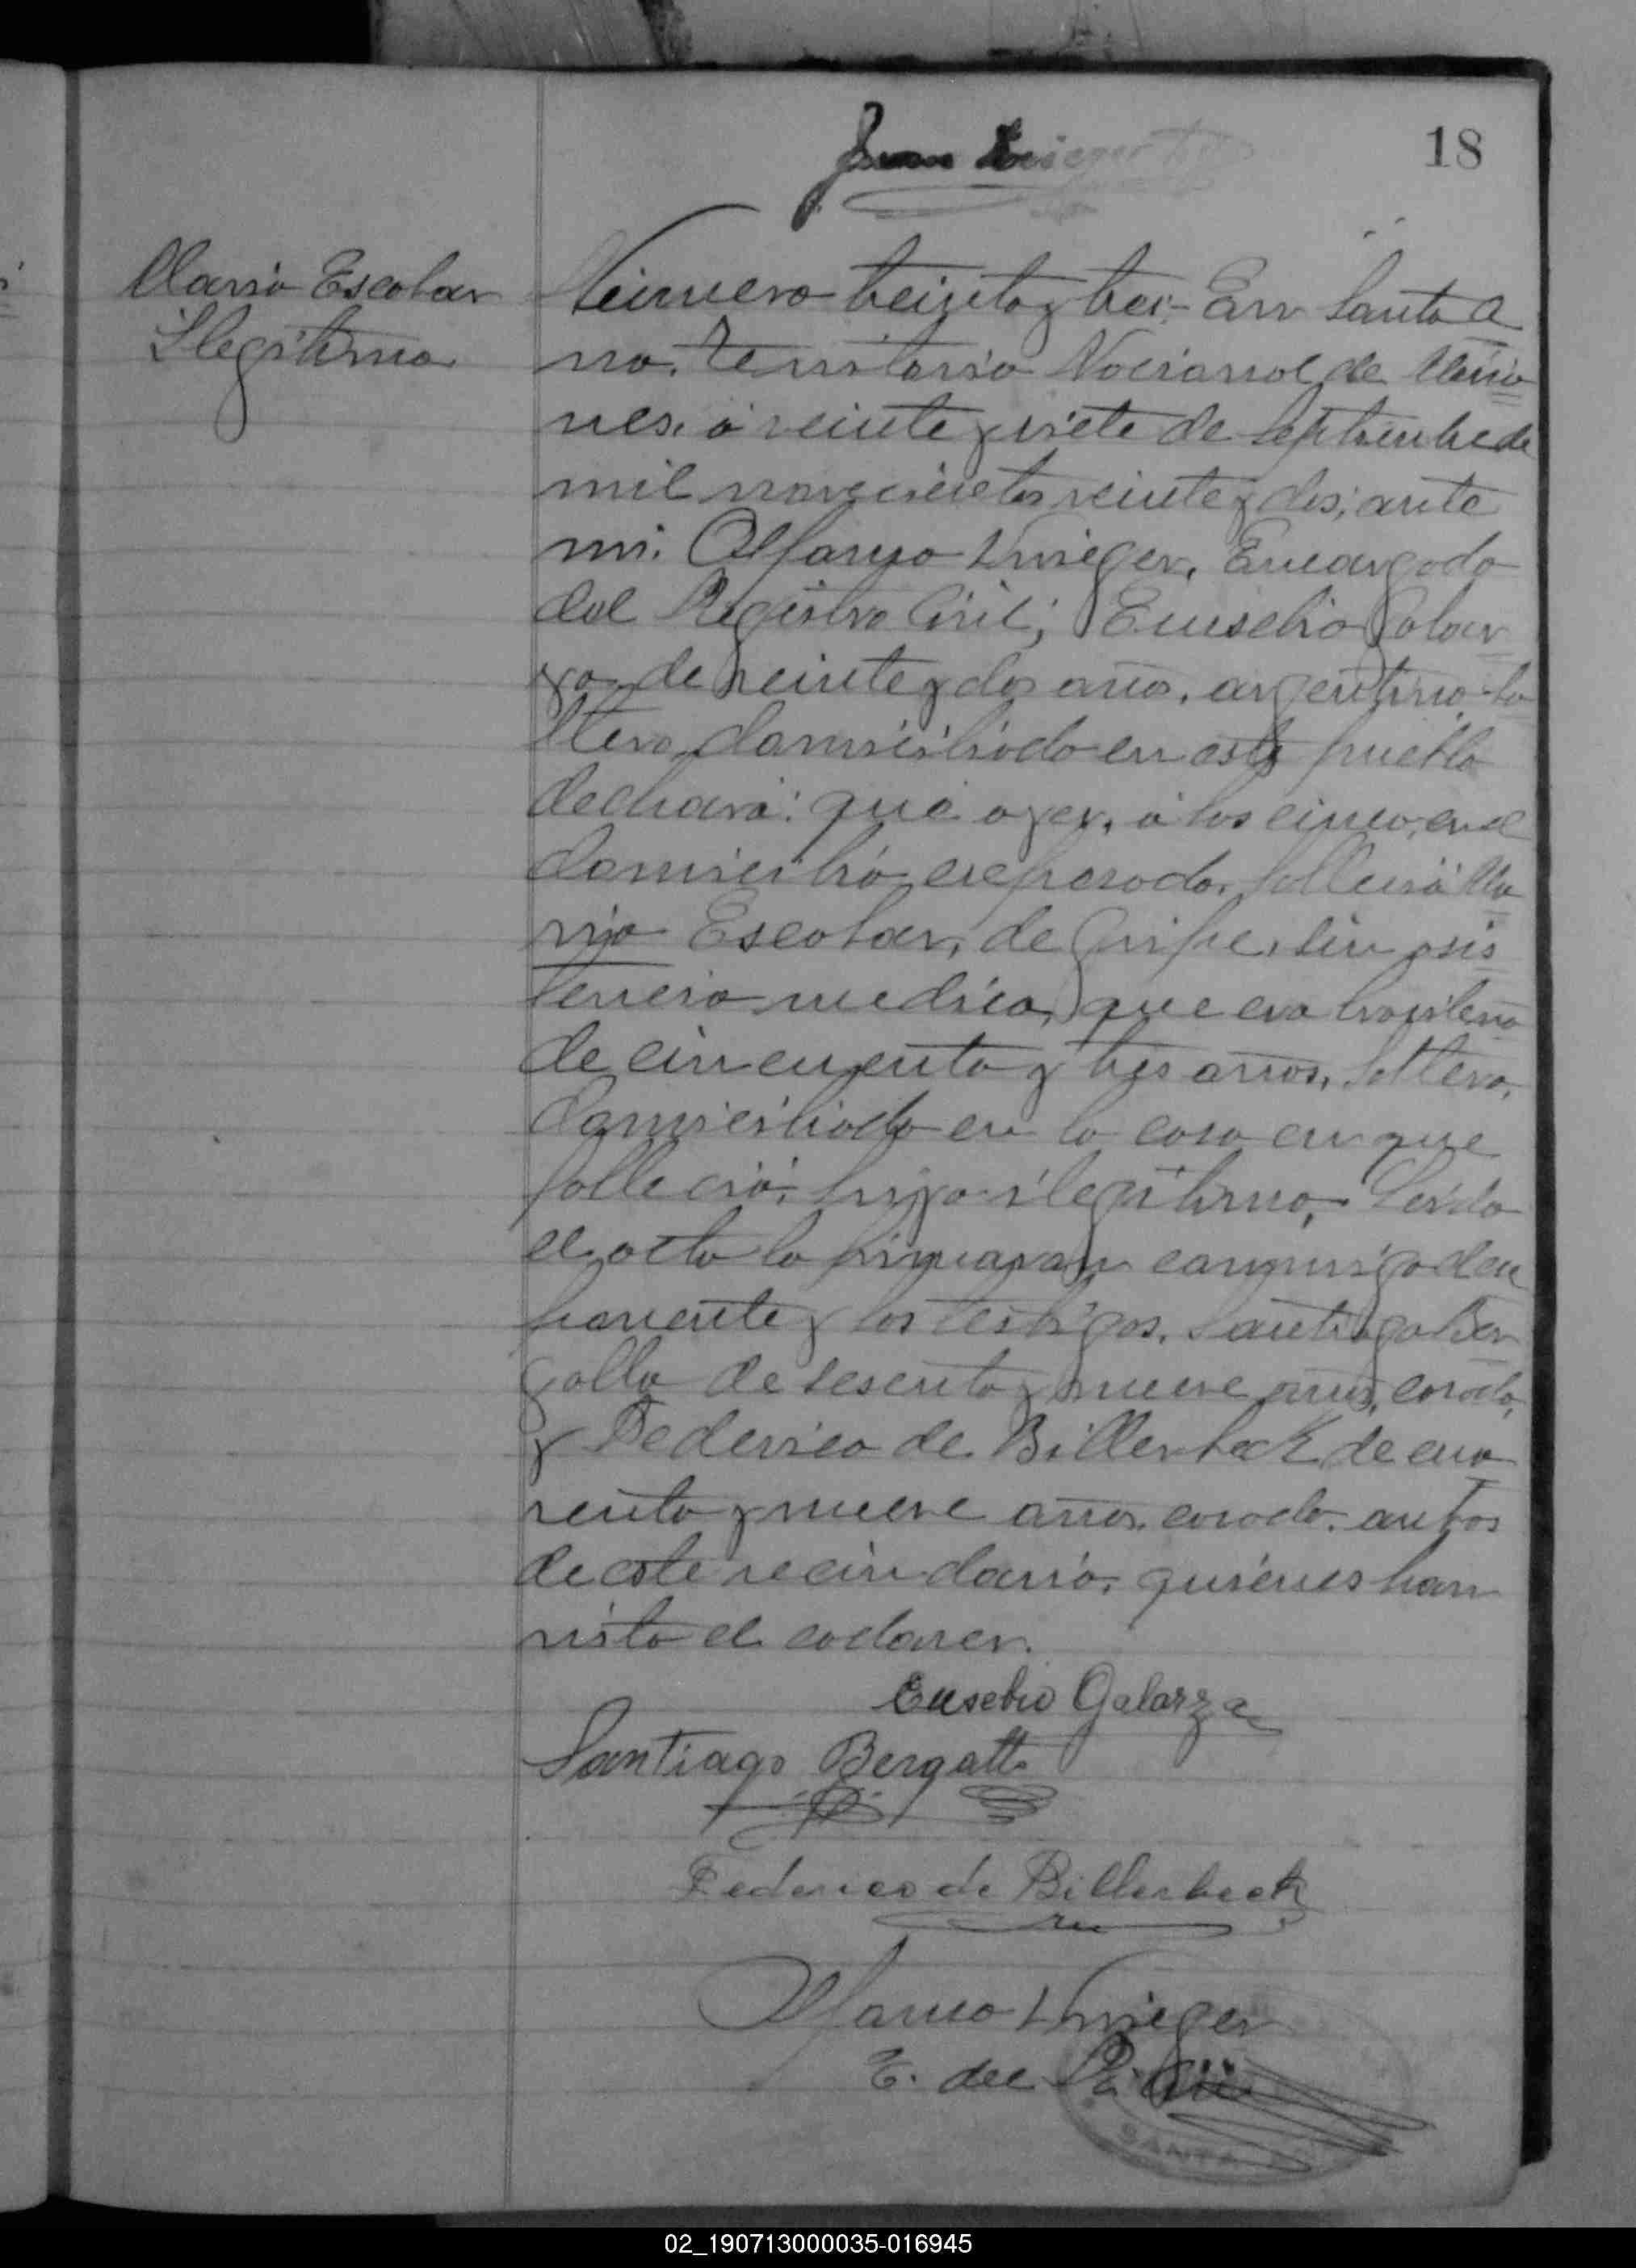 18
Juan Krieger
Maria Escobar
Ilegitima
Número treinta y tres - En Santa A
na, Territorio Nacional de Misio
nes, á veinte y siete de Septiembre de
mil novecientos veinte y dos; ante
mi. Alfano Krieger, Encargado
del Registro Civil; Euselio Galar
za, de veinte y dos años, argentino so
ltero, domiciliado en este pueblo
declaró: que ayer, á las cinco, en el
domicilio expresado, falleció Ma
ria Escobar, de Gripe, sin asis
tencia medica, que era brasilera
de cincuenta y tres años, soltera,
domiciliada en la casa en que
falleció, hija ilegitima. Leida
el acta la firmaron conmigo el de
ponente y los testigos, Santiago Ber
gallo de sesenta y nueve años, casado,
y Federico de Billerbeck de cua
renta y nueve años, casado, ambos
de este vecindario, quienes han
visto el cadaver.
Eusebio Galarza
Santiago Bergallo
Federico de Billerbeck
Alfano Krieger
E. del R. Civil
SANTA
02_190713000035-016945